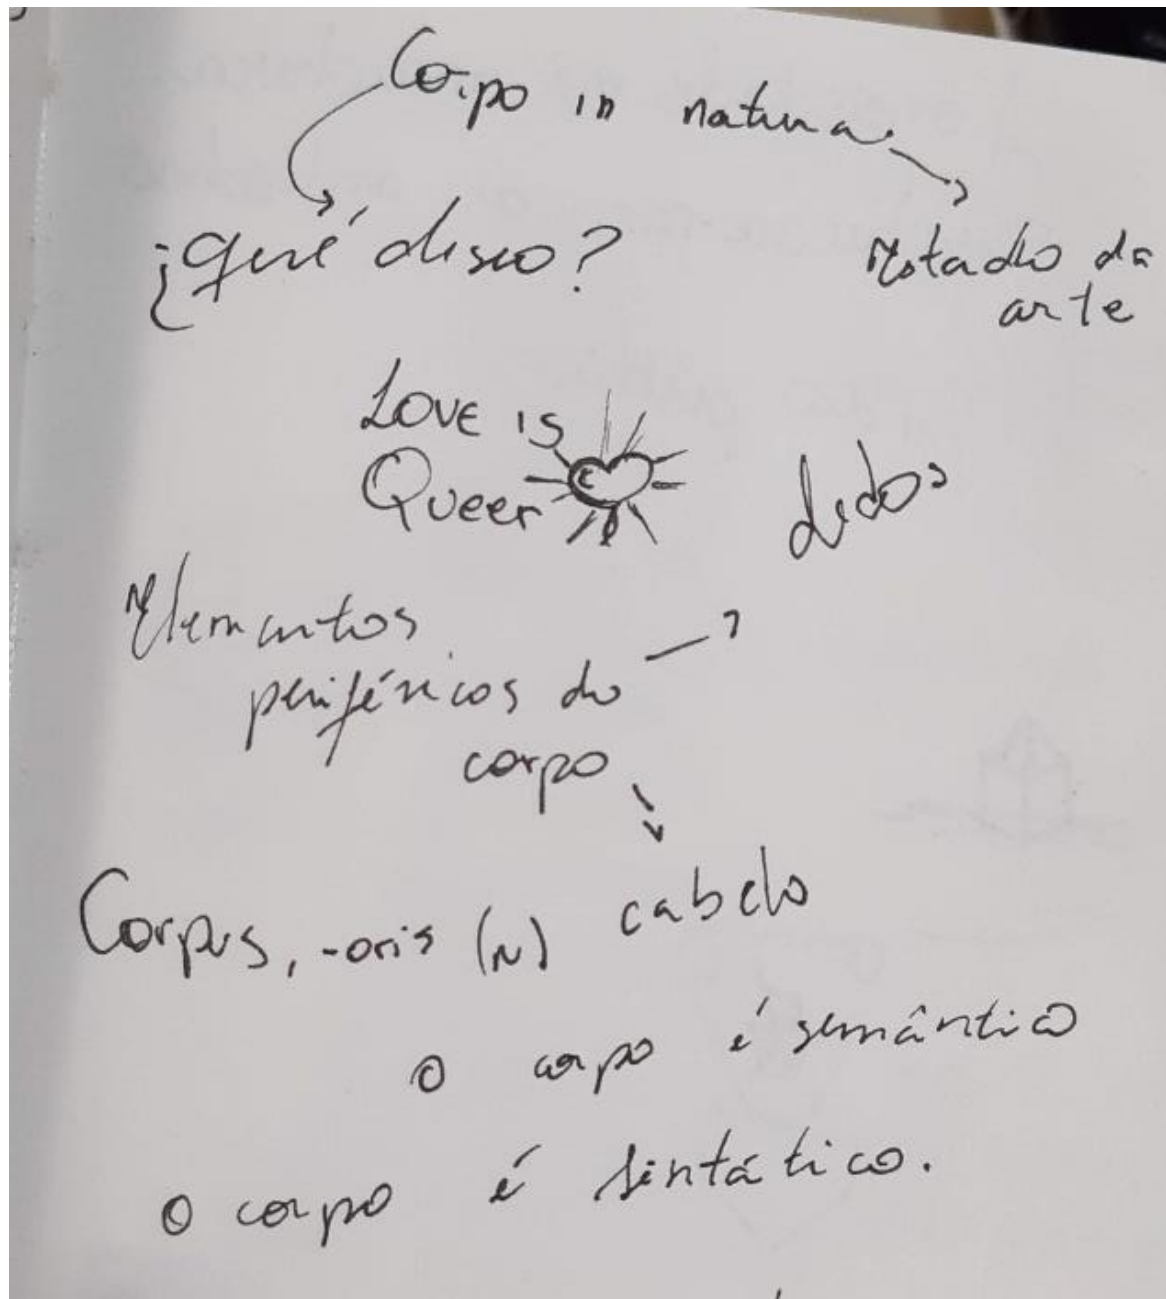 Corpo in natura
¿qué diseo?
Estado da
arte
Love is
Queer
dedos
Elementos
periféricos do
corpo
cabelo
Corpus, -oris (n)
o corpo é semântico
o corpo é sintático.